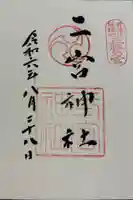 二宮神社
令和六年八月二十八日